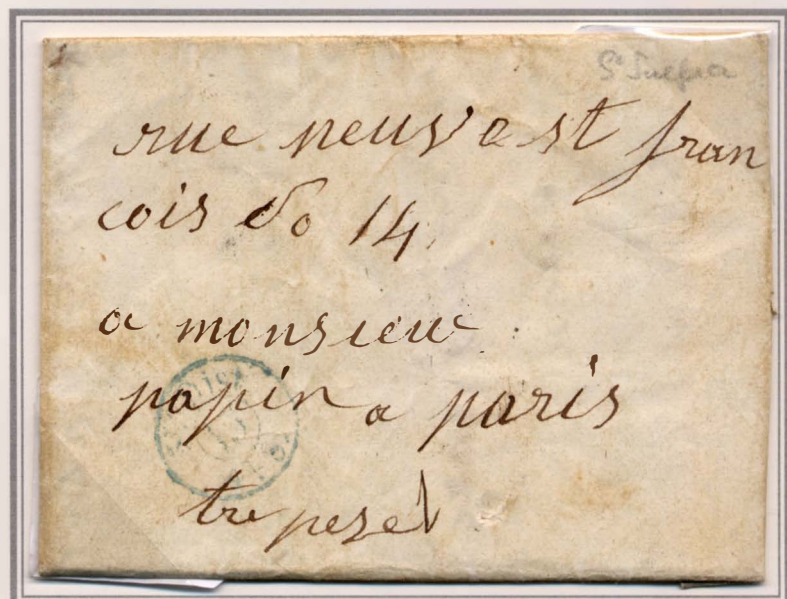 rue neuv e st fran
cois No 14
a monsieur
papin a paris
tre pesé